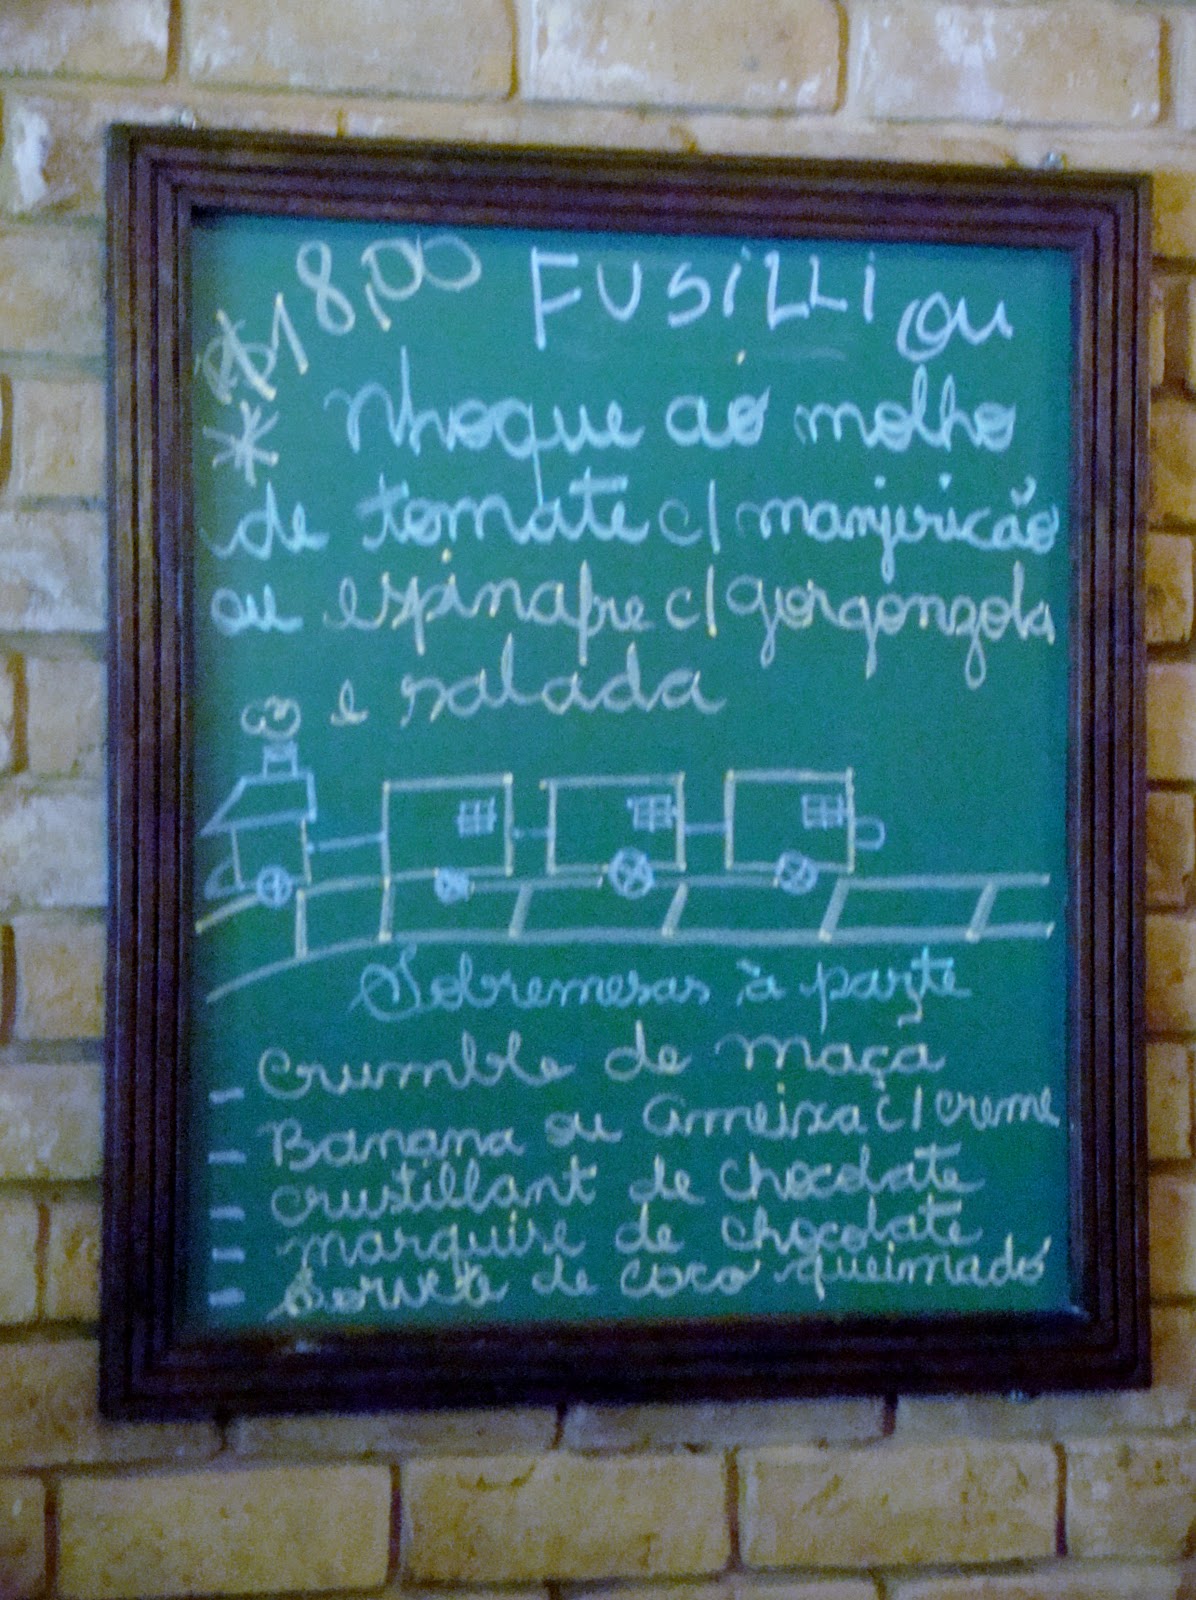 $18,00 FUSILLI ou
* Nhoque ao molho
de tomate c/ manjericão
ou espinafre c/ gorgonzola
e salada
Sobremesas à parte
- Crumble de maça
- Banana ou Ameixa c/ creme
- crustillant de chocolate
- marquise de chocolate
- Sorvete de coco queimado